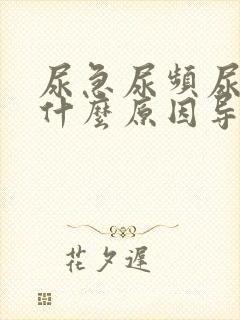 尿急尿頻尿
什麼原因导
花夕遲